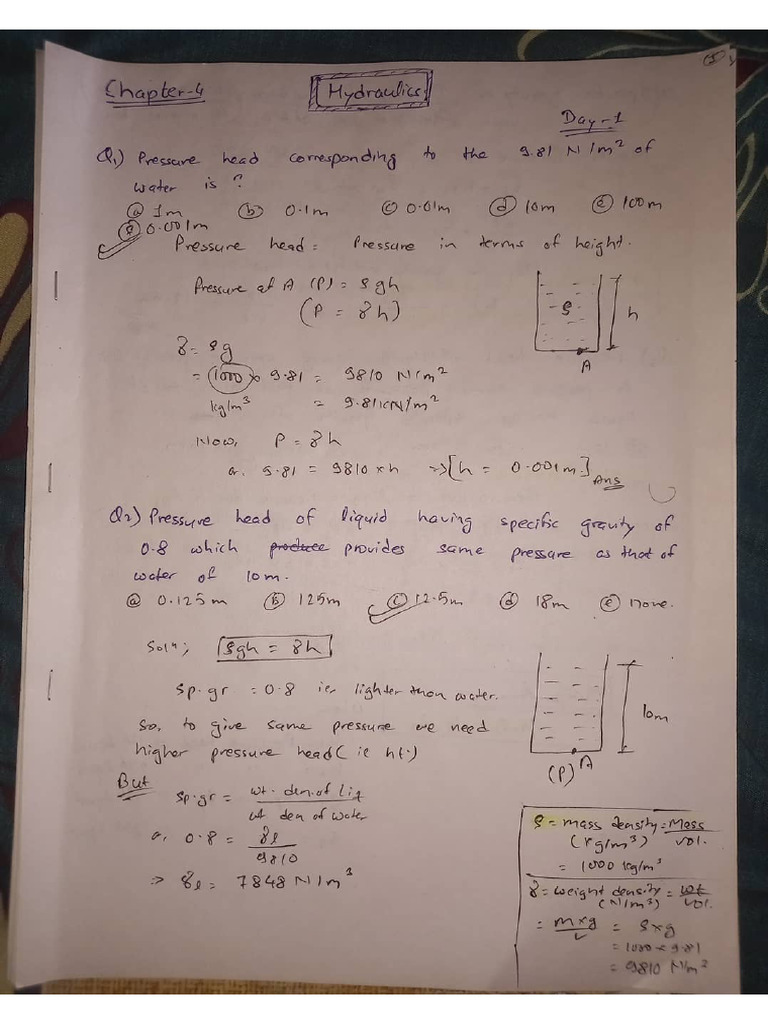 Chapter-4
Hydraulics
Day-1
Q1) Pressure head corresponding to the 9.81 N/m² of
water is ?
ⓐ 1m ⓑ 0.1m ⓒ 0.01m ⓓ 10m ⓔ 100m
ⓔ 0.001m
Pressure head = Pressure in terms of height.
Pressure at A (P) = ρgh
(P = γh)
ρ
h
A
γ = ρg
= 1000 × 9.81 = 9810 N/m²
kg/m³ = 9.81KN/m²
Now, P = γh
or, 9.81 = 9810 × h ⇒ [h = 0.001m] Ans
Q2) Pressure head of liquid having specific gravity of
0.8 which produce provides same pressure as that of
water of 10m.
ⓐ 0.125m ⓑ 125m ⓒ 12.5m ⓓ 18m ⓔ none.
Solⁿ; ρgh = γh
Sp.gr = 0.8 ie, lighter than water.
So, to give same pressure we need
higher pressure head (ie ht.)
10m
(P) A
But
Sp.gr = wt. den. of liq / wt den of water
or, 0.8 = γl / 9810
⇒ γl = 7848 N/m³
ρ = mass density = Mass / vol.
(kg/m³)
= 1000 kg/m³
γ = weight density = wt / vol.
(N/m³)
= m×g / v = ρ×g
= 1000 × 9.81
= 9810 N/m²